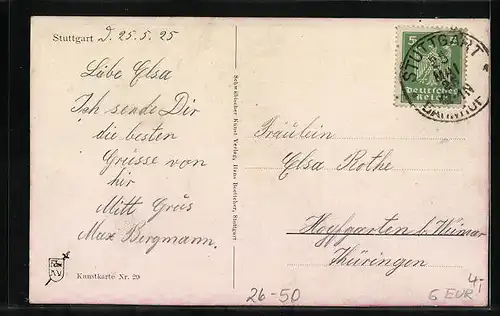 Stuttgart D. 25.5.25
Lübe Elsa
Ich sende Dir
die besten
Grüsse von
hir
Mitt Grüs
Max Bergmann.
Kunstkarte Nr. 29
Schwäbischer Kunst-Verlag, Hans Boettcher, Stuttgart
5
Deutsches
Reich
STUTTGART
MAI
BAHNHOF
Fräulein
Elsa Rothe
Hopfgarten b. Weimar
Thüringen
26-50
6 EUR
4,-